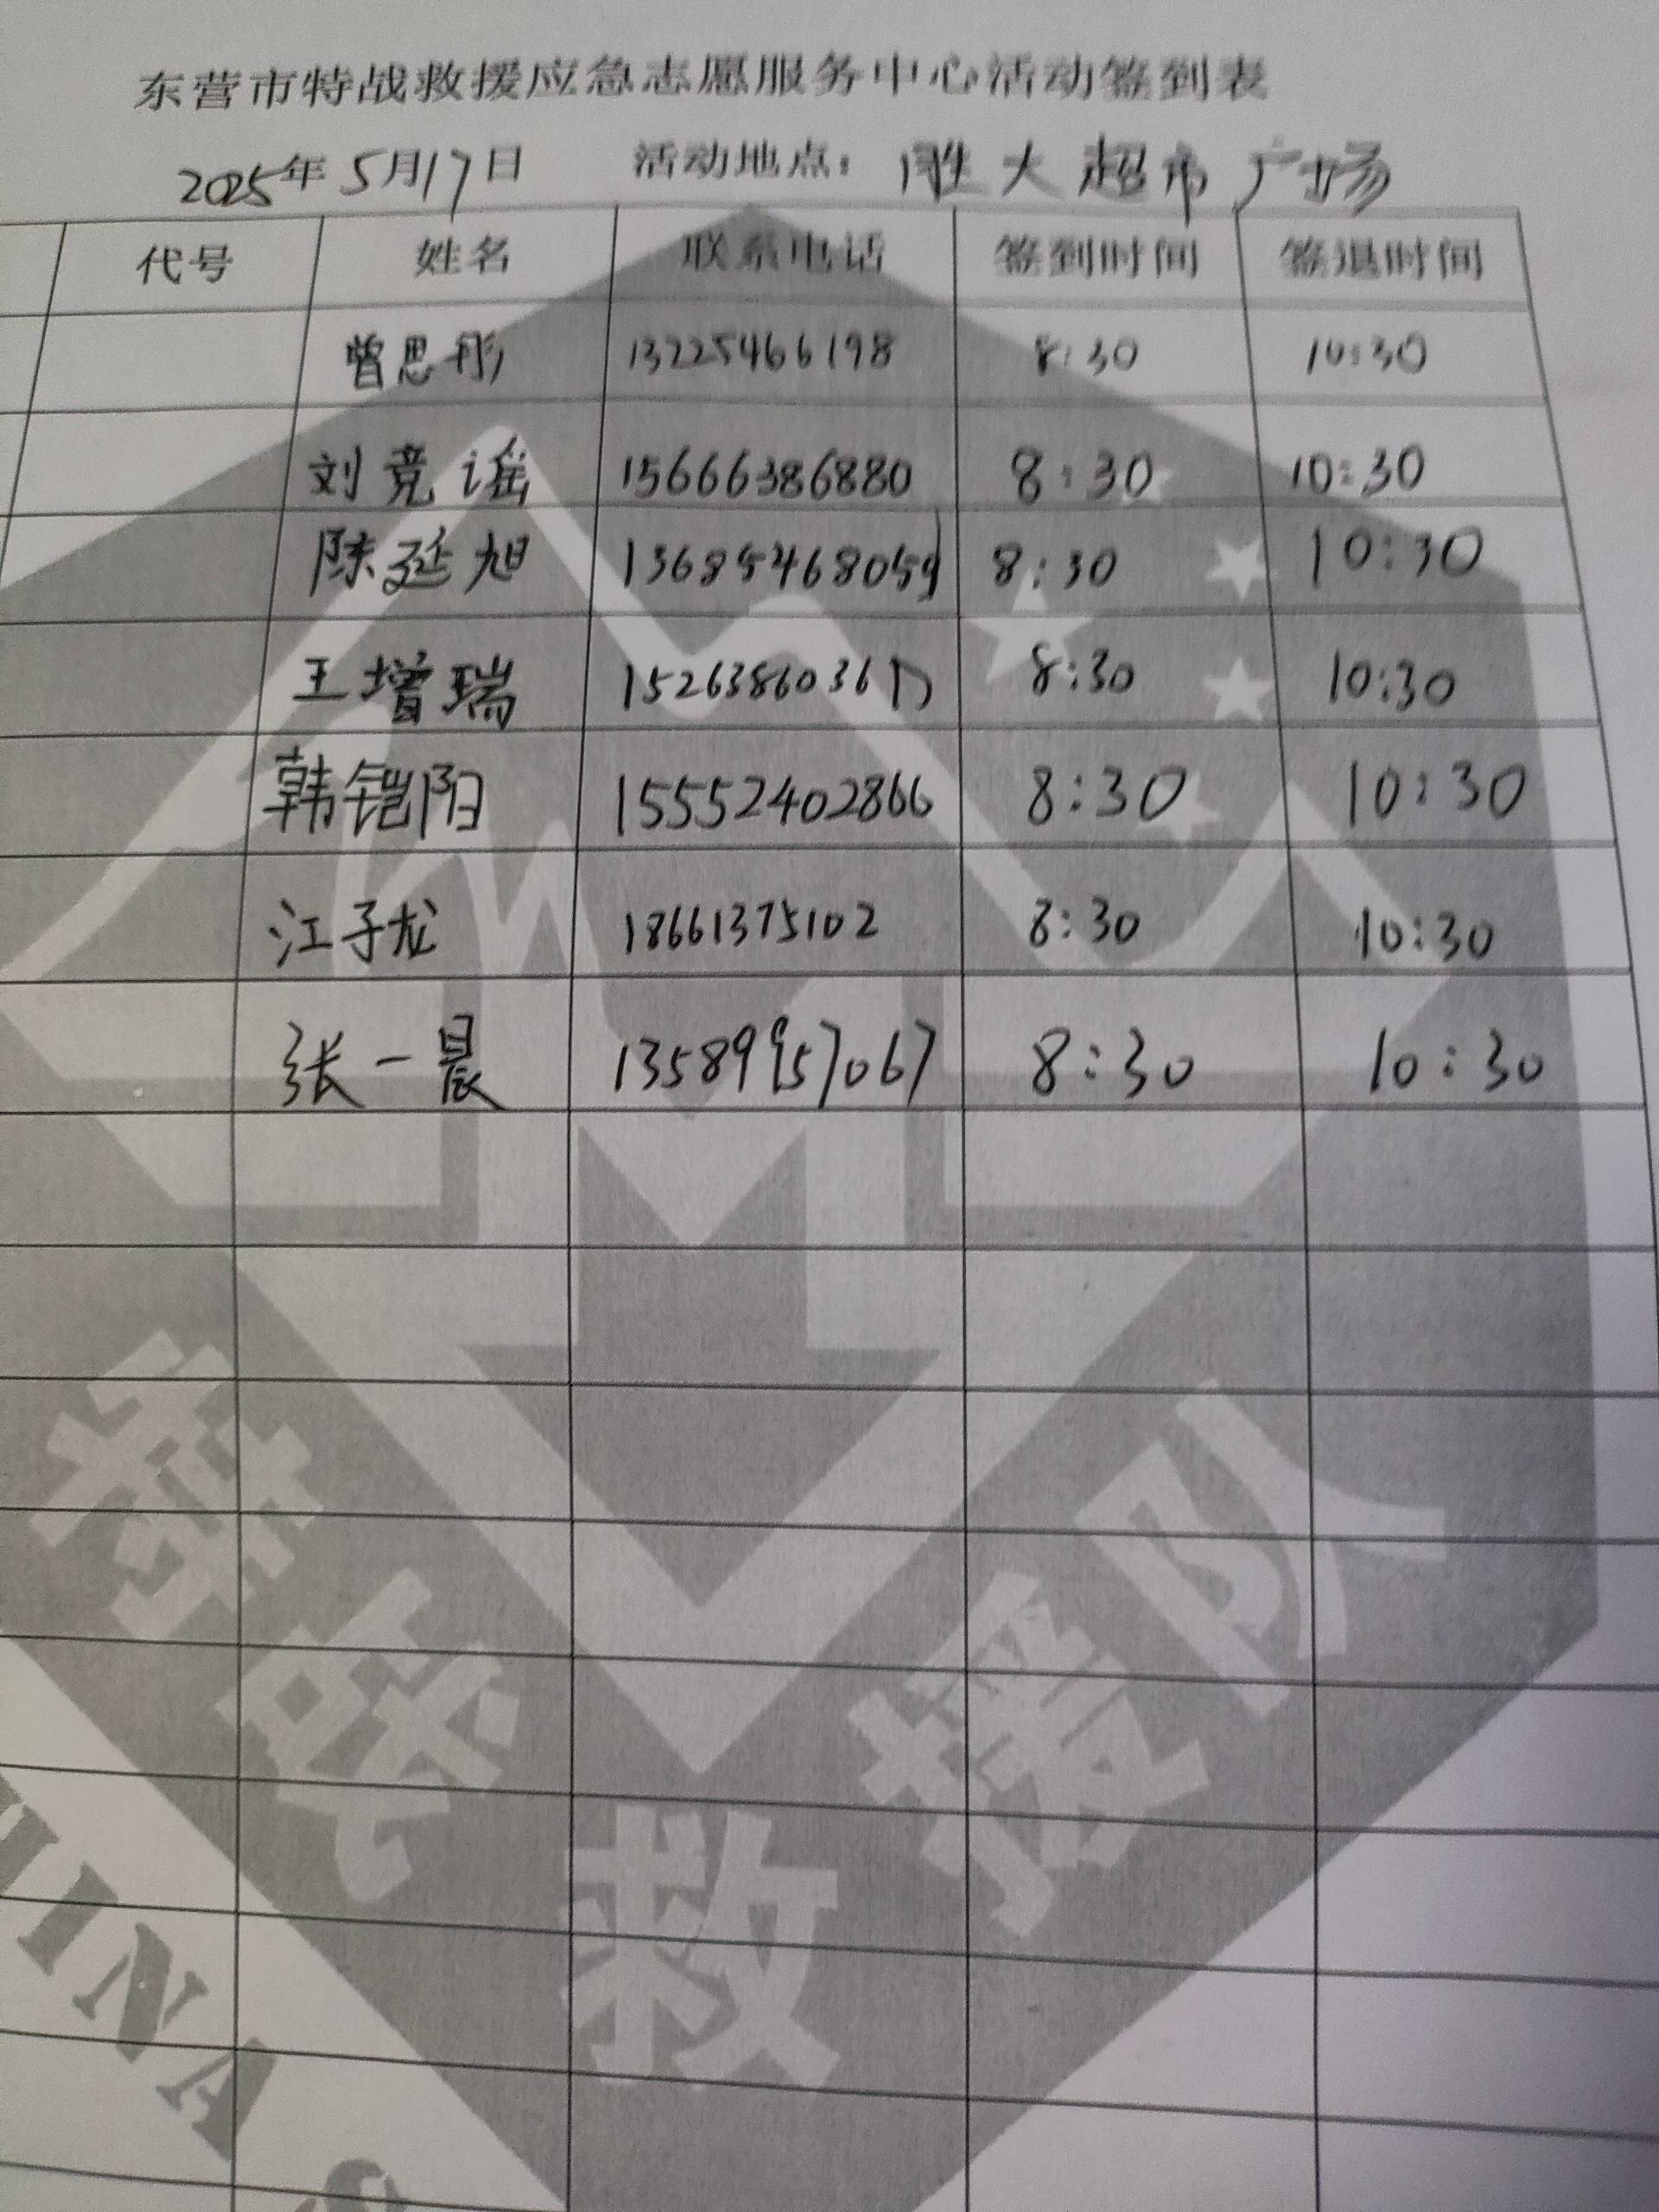 东营市特战救援应急志愿服务中心活动签到表
2025年5月17日 活动地点：胜大超市广场
代号 姓名 联系电话 签到时间 签退时间
曾思彤 13225466198 8:30 10:30
刘竞谣 15666386880 8:30 10:30
陈延旭 13685468059 8:30 10:30
王增瑞 8:30 10:30
韩铠阳 15552402866 8:30 10:30
江子龙 18661375102 8:30 10:30
张一晨 13589957067 8:30 10:30
特战救援队
HINA S